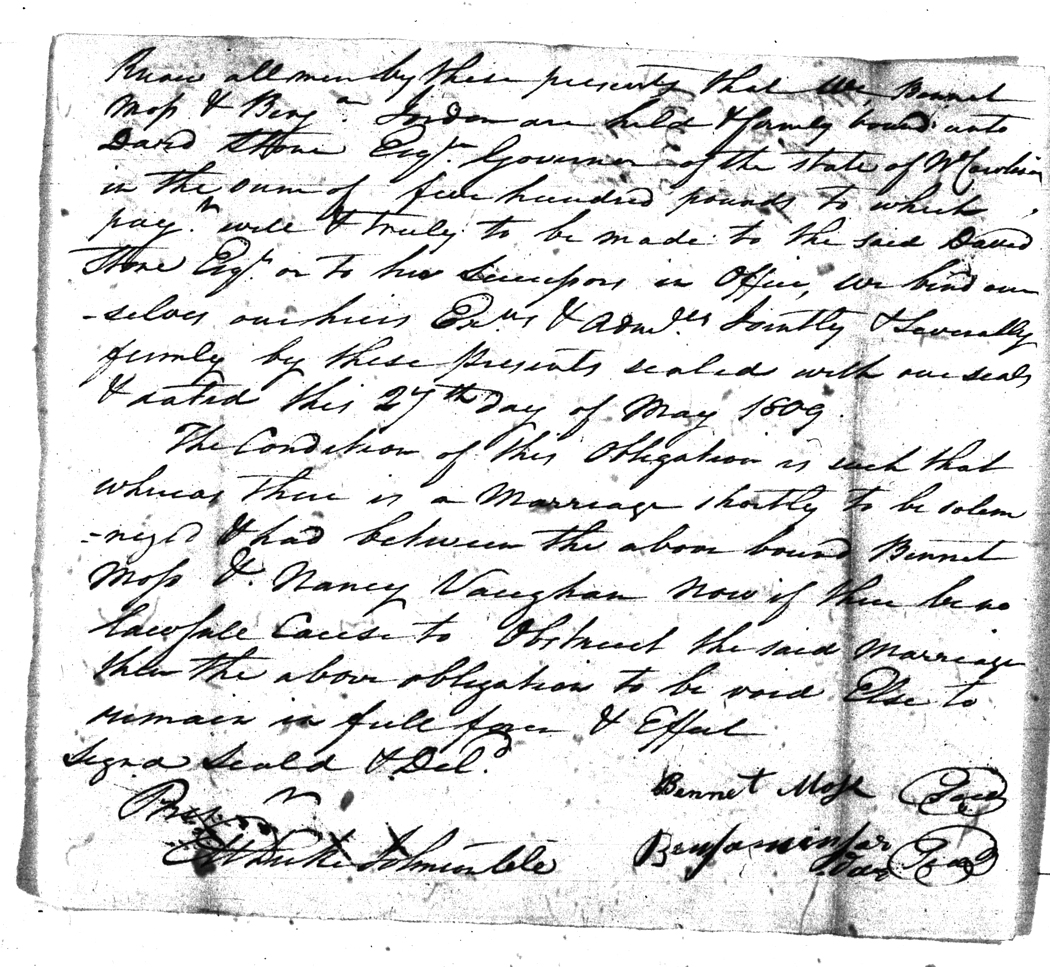 Know all men by these presents that We, Bennet
Moss & Benjan. Jordan are held & firmly bound unto
David Stone Esqr. Governor of the state of No. Carolina
in the sum of five hundred pounds to which
paymt. will & truly to be made to the said David
Stone Esqr. or to his Successors in Office, we bind our
-selves our heirs Exrs & Admrs Jointly & Severally
firmly by these presents sealed with our seals
& dated this 27th day of May 1809.
The Condition of this Obligation is such that
whereas there is a Marriage shortly to be solem
=nized & had between the above bound Bennet
Moss & Nancy Vaughan Now if there be no
lawfull Cause to Obstruct the said Marriage
then the above obligation to be void Else to
remain in full force & Effect
Signd Seald & Deld.
Bennet Moss Seal
Benjamin Jor
dan Seal